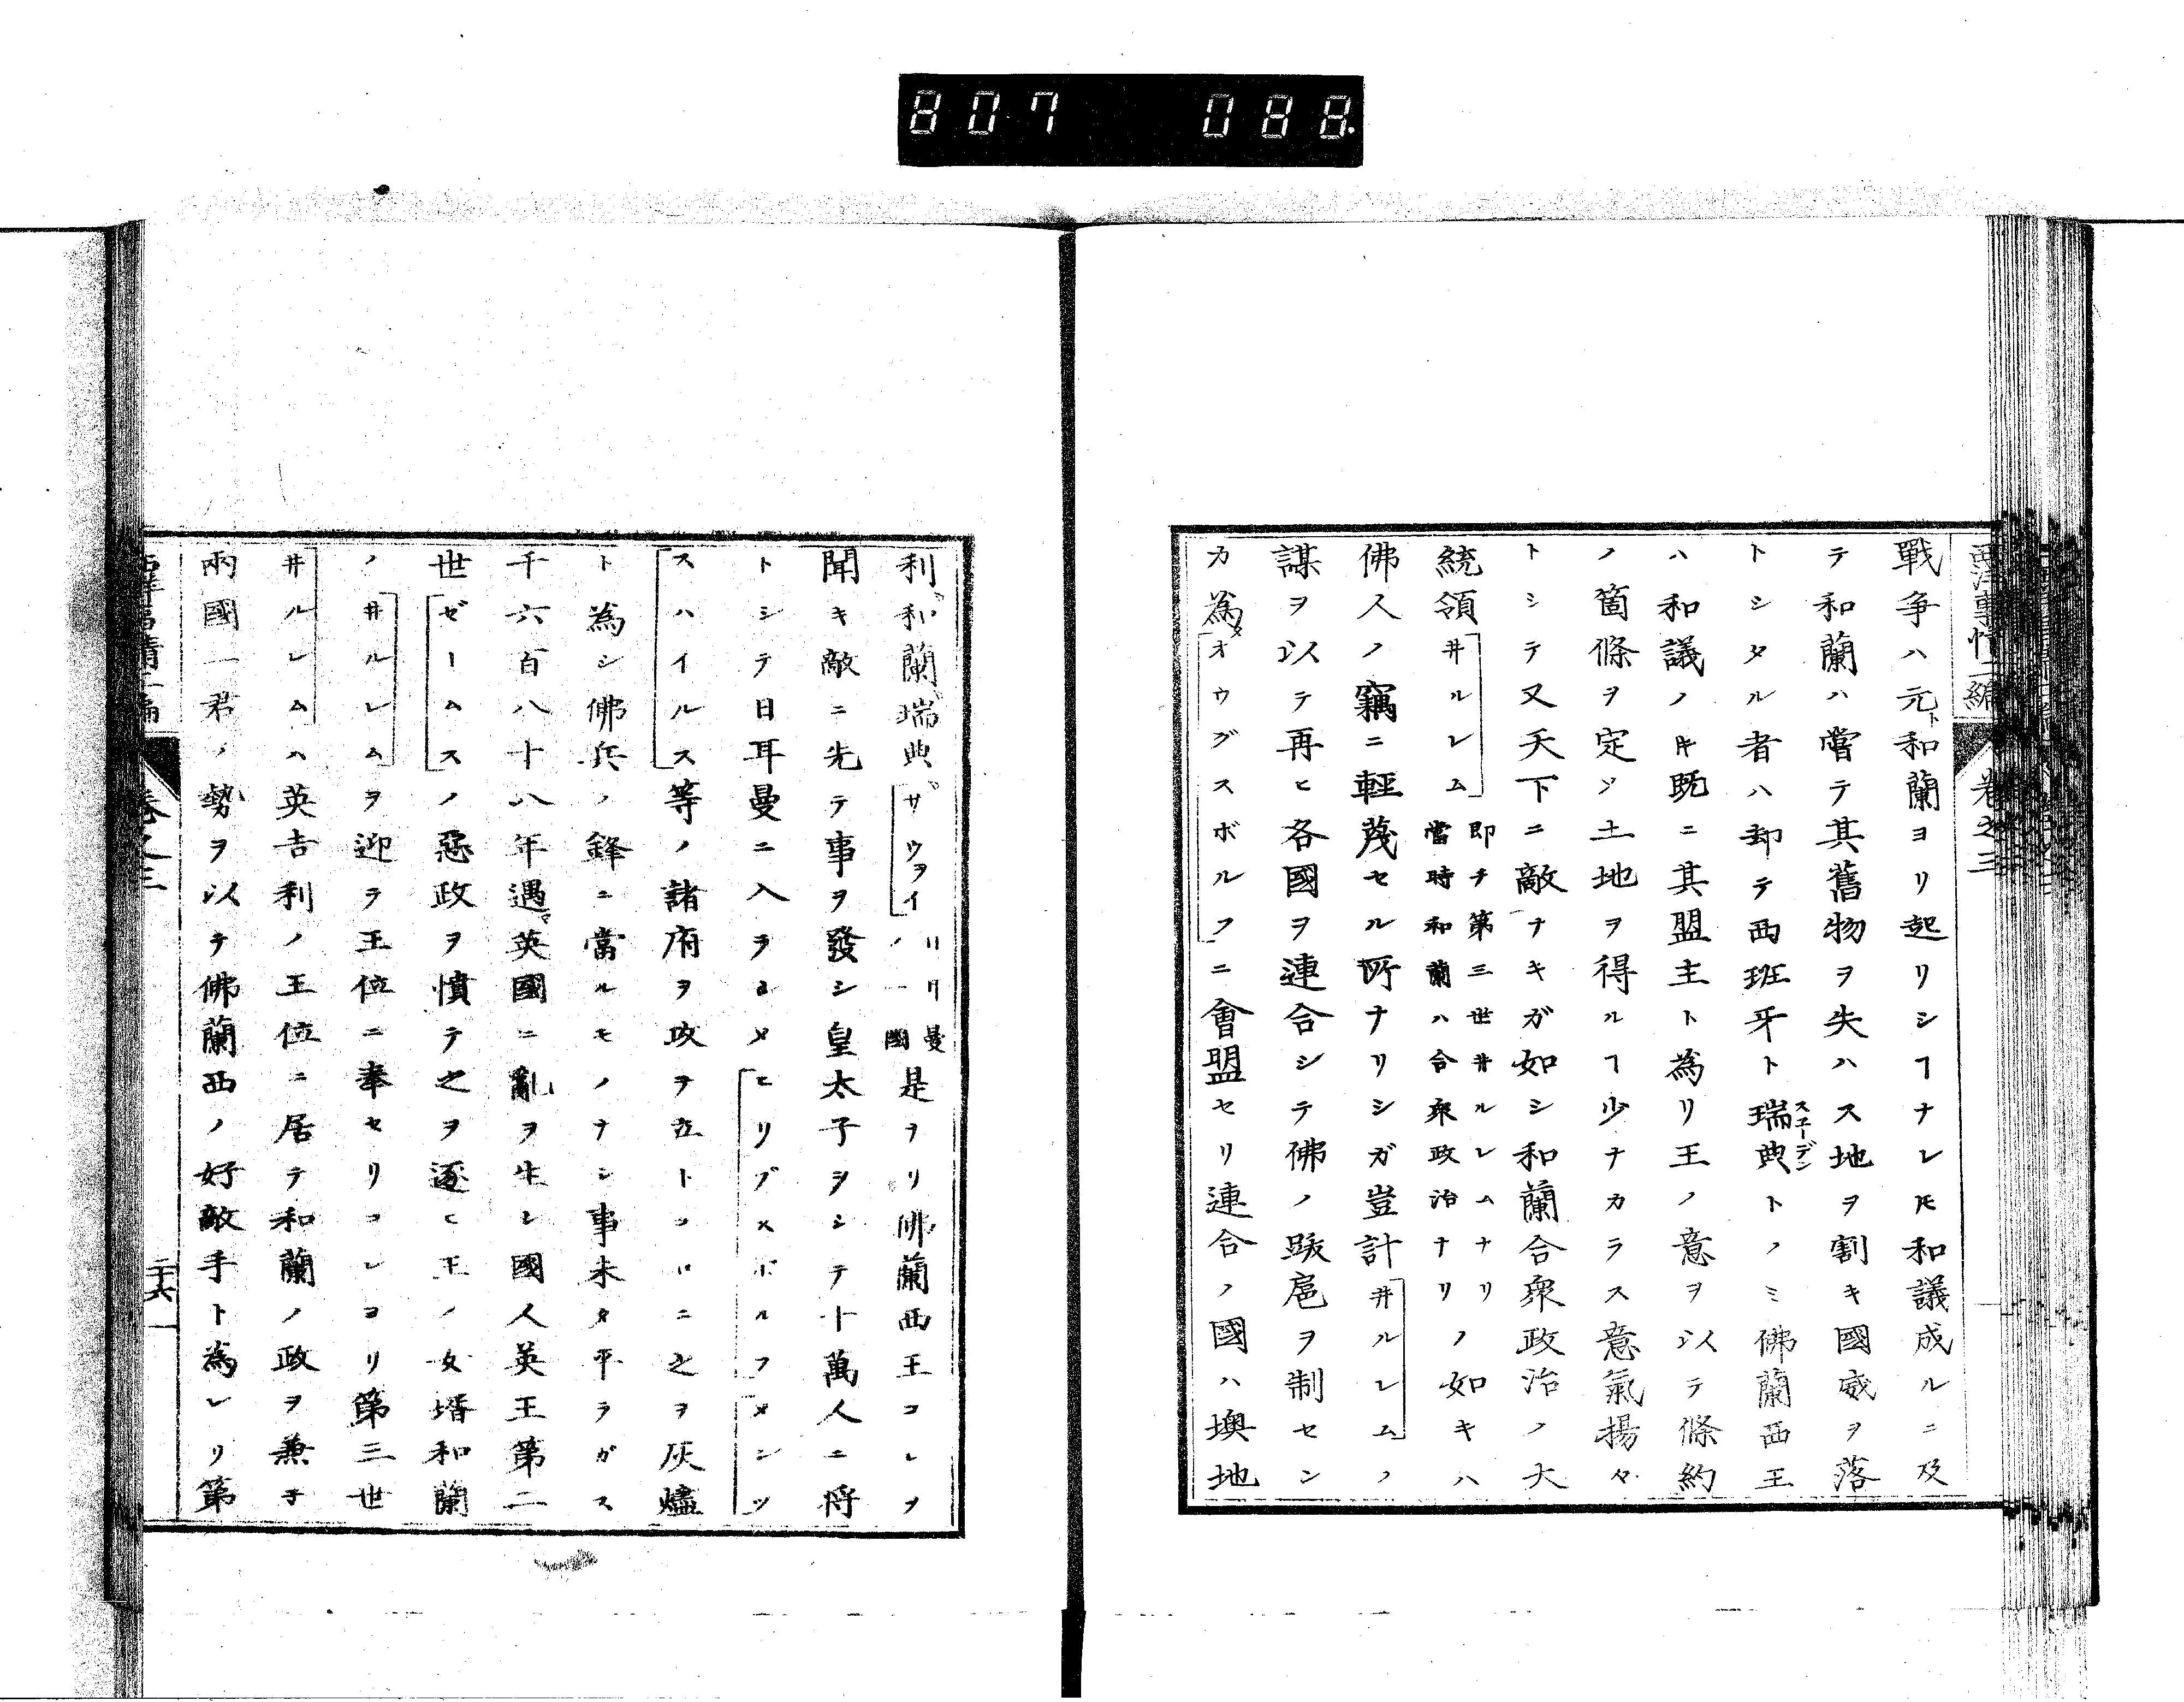 807 088.
西洋事情二編 卷之三
戰爭ハ元ト和蘭ヨリ起リシヿナレ𪜈和議成ルニ及
テ和蘭ハ嘗テ其舊物ヲ失ハス地ヲ割キ國威ヲ落
トシタル者ハ却テ西班牙ト瑞典スユーデントノミ佛蘭西王
ハ和議ノ𪜈既ニ其盟主ト為リ王ノ意ヲ以テ條約
ノ箇條ヲ定メ土地ヲ得ルヿ少ナカラス意氣揚々
トシテ又天下ニ敵ナキガ如シ和蘭合衆政治ノ大
統領「井ルレム」即チ第三世井ルレムナリ當時和蘭ハ合衆政治ナリノ如キハ
佛人ノ竊ニ輕蔑セル所ナリシガ豈計「井ルレム」ノ
謀ヲ以テ再ヒ各國ヲ連合シテ佛ノ跋扈ヲ制セン
カ為メ「オウグスボルフ」ニ會盟セリ連合ノ國ハ墺地
利、和蘭、瑞典、「サウヲイ」ノ一國是ヲリ佛蘭西王コレヲ
聞キ敵ニ先テ事ヲ發シ皇太子ヲシテ十萬人ニ將
トシテ日耳曼ニ入ラシメ「ヒリプスボルフ」「メンツ」
「スハイルス」等ノ諸府ヲ攻ヲ立トコロニ之ヲ灰燼
ト為シ佛兵ノ鋒ニ當ルモノナシ事未タ平ラガス
千六百八十八年遇マ英國ニ亂ヲ生シ國人英王第二
世「ゼームス」ノ惡政ヲ憤テ之ヲ逐ヒ王ノ女壻和蘭
ノ「井ルレム」ヲ迎ラ王位ニ奉セリコレヨリ第三世
「井ルレム」ハ英吉利ノ王位ニ居テ和蘭ノ政ヲ兼子
兩國一君ノ勢ヲ以テ佛蘭西ノ好敵手ト為レリ第
西洋事情二編 卷之三 二十六